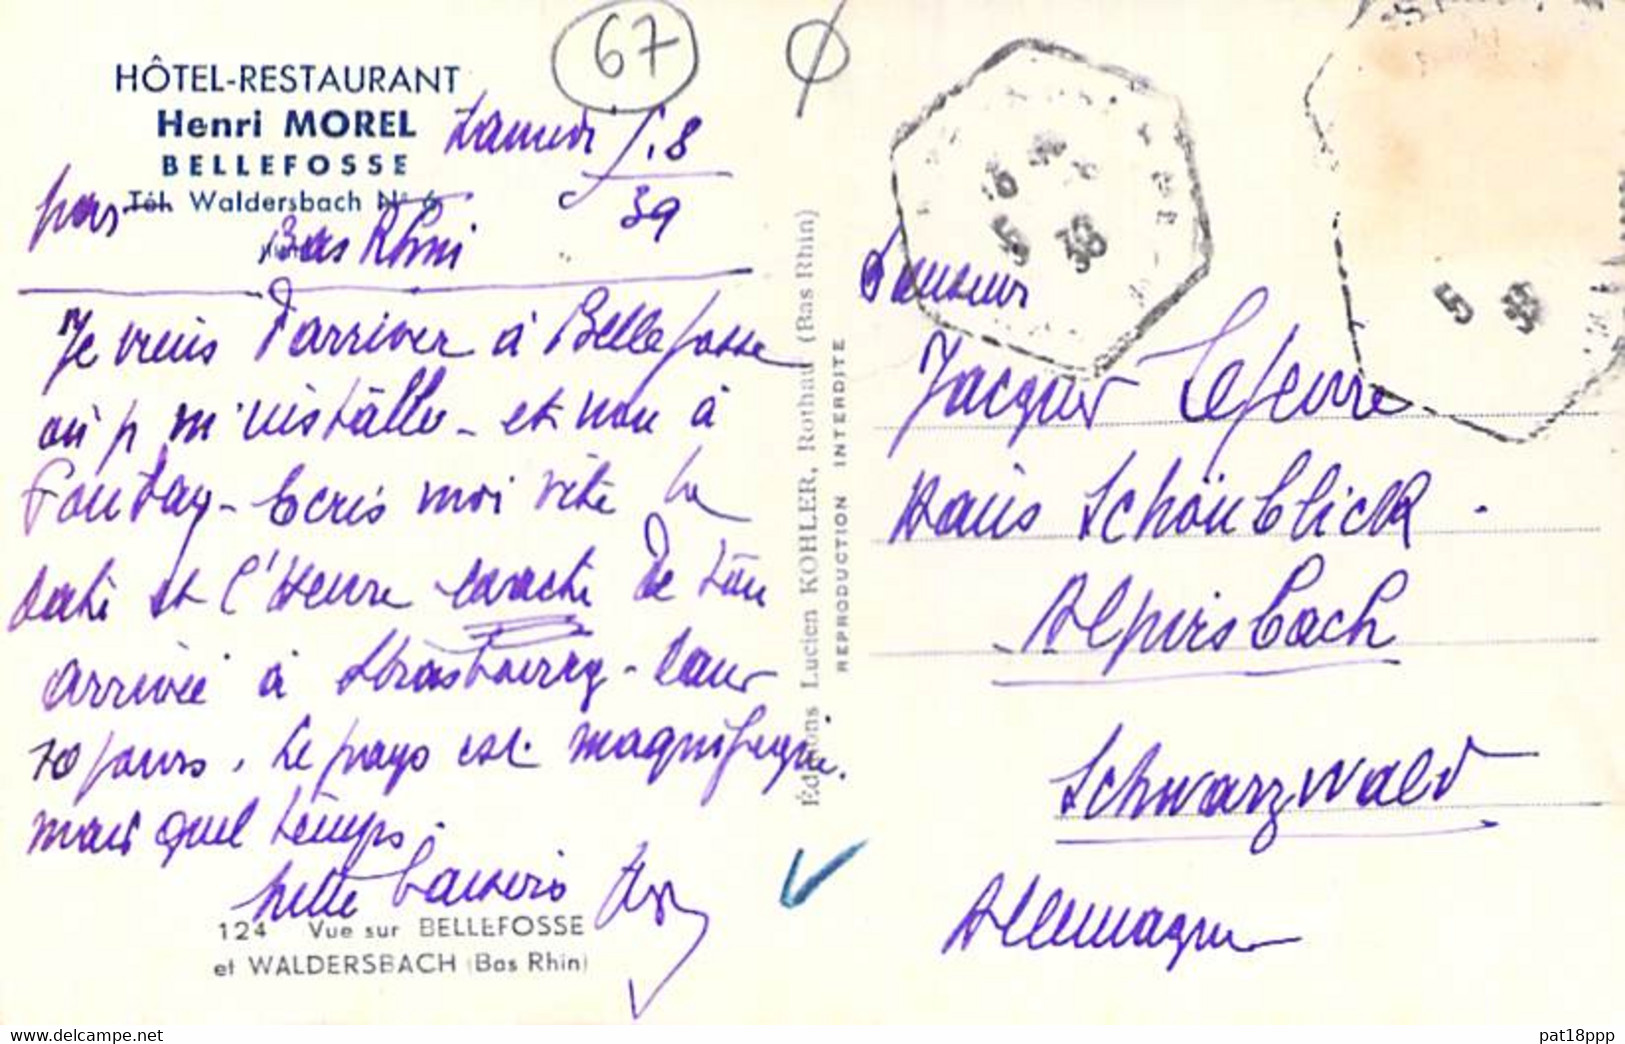 67
HÔTEL-RESTAURANT
Henri MOREL
BELLEFOSSE
Tél. Waldersbach N° 6
Samedi 5.8
39
par
Bas Rhin
Je viens d'arriver à Bellefosse
où je m'installe - et non à
Fouday - Ecris moi vite la
date et l'Heure exacte de ton
arrivée à Strasbourg - dans
10 jours. Le pays est magnifique.
mais quel temps.
mille baisers
124 Vue sur BELLEFOSSE
et WALDERSBACH (Bas Rhin)
Éditions Lucien KOHLER, Rothau (Bas Rhin)
REPRODUCTION INTERDITE
5 39
5 39
Monsieur
Jacques Lefeuvre
Haus Schönblick
Alpirsbach
Schwarzwald
Allemagne
www.delcampe.net
pat18ppp